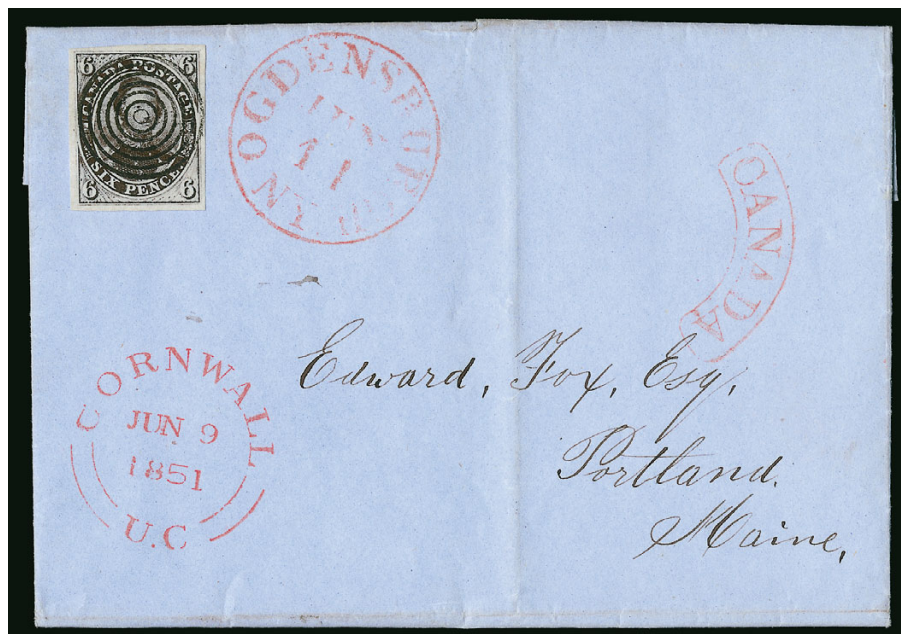 6 CANADA POSTAGE 6
6 SIX PENCE 6
OGDENSBURGH N.Y.
JUN
11
CANADA
CORNWALL
JUN 9
1851
U.C
Edward, Fox, Esq,
Portland.
Maine,